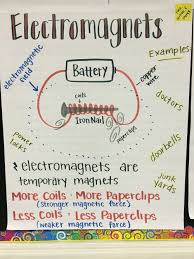 Electromagnets
Examples
electromagnetic
field
Battery
copper
wire
coils
Iron Nail
paperclips
doctors
doorbells
power
locks
junk
yards
electromagnets are
temporary magnets
More Coils · More Paperclips
(stronger magnetic force)
Less Coils · Less Paperclips
(weaker magnetic force)